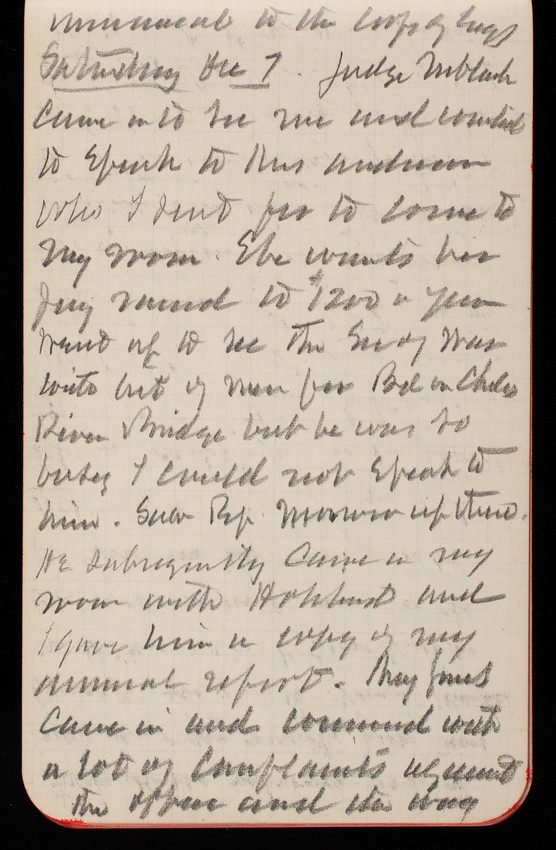 to the Corps of Engs
Saturday Dec 7. Judge
Came in to see me and wanted
to speak to
who I sent for to come to
my room. Ebe wants his
pay raised to $1200 a year
went up to see the Secy War
with list of men for Bd on
River Bridge but he was so
busy I could not speak to
him. Saw Rep. Morrow up there.
He subsequently came in my
room with and
I gave him a copy of my
annual report. Maj Jones
Came in and with
a lot of complaints against
the office and the way